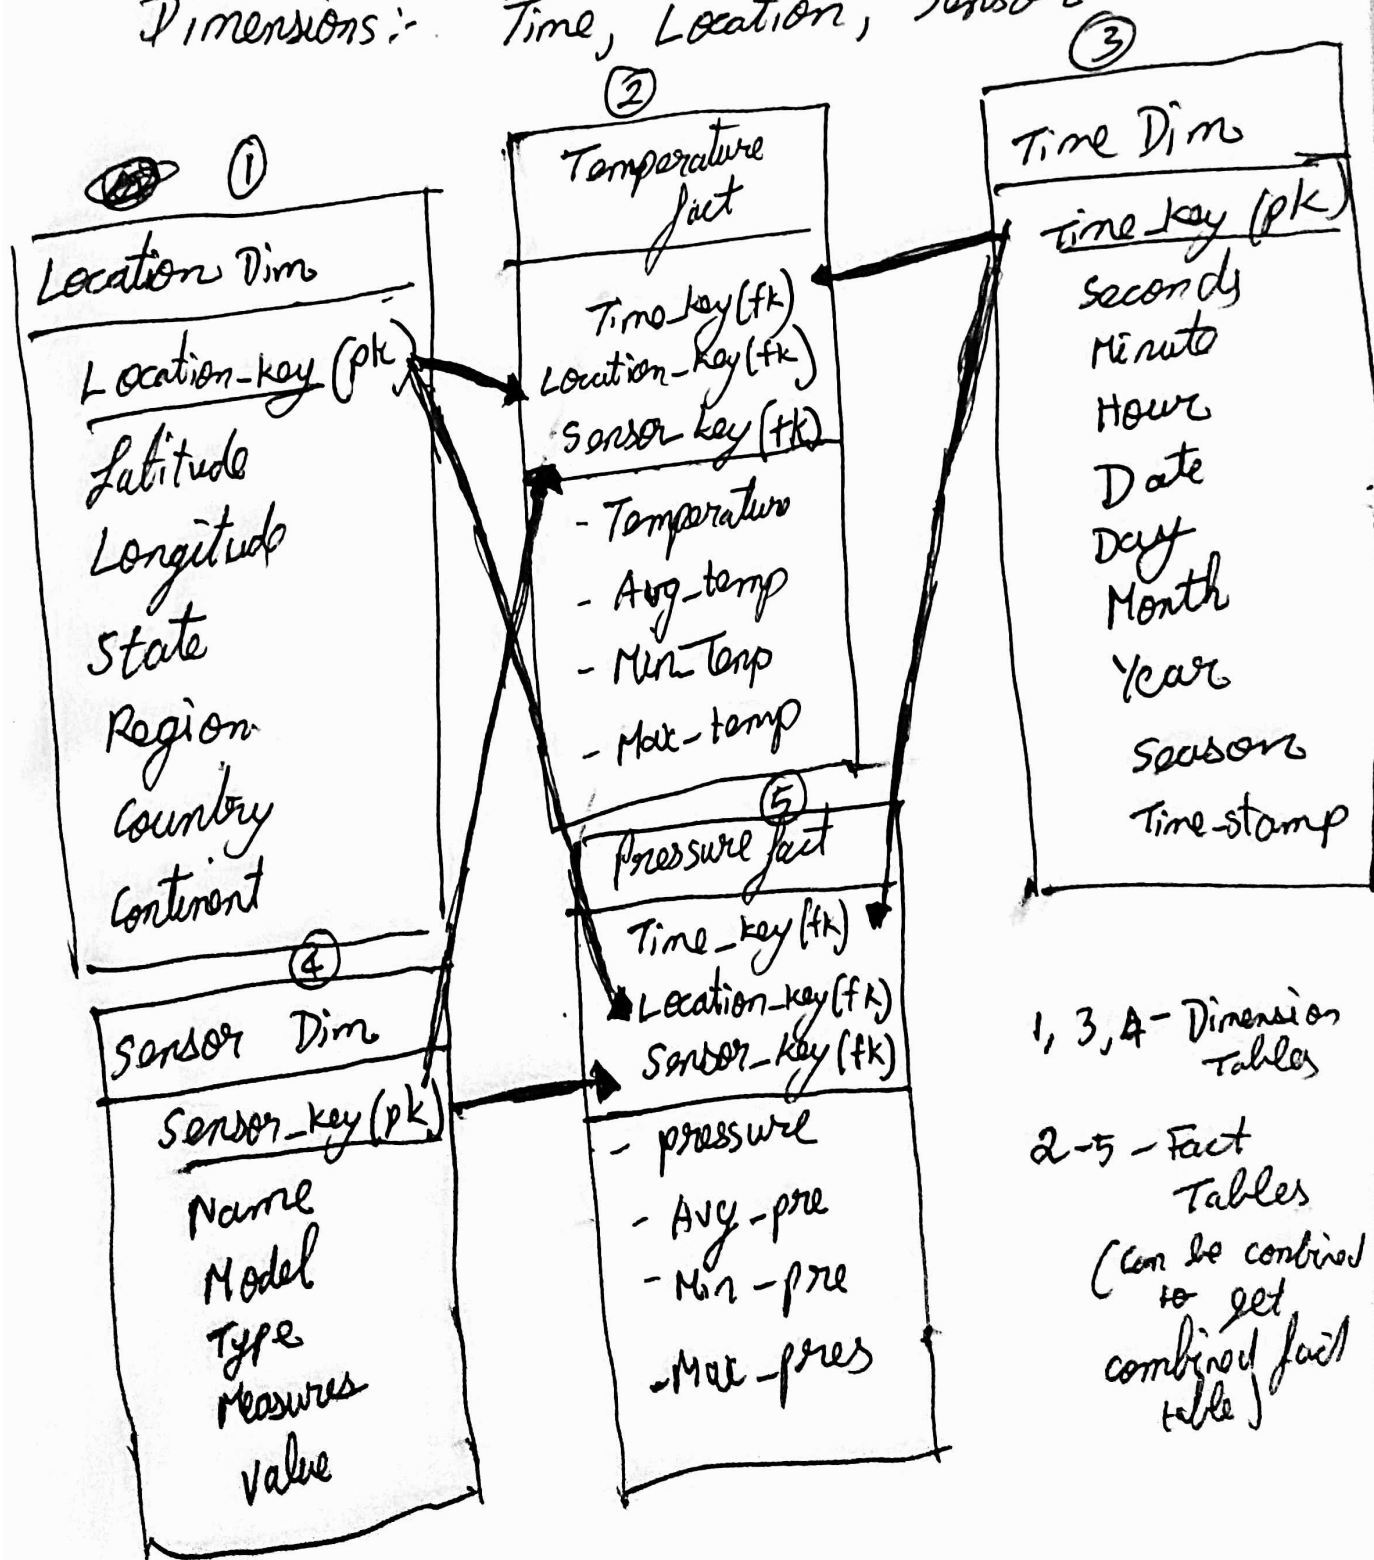 Dimensions:- Time, Location, Sensor
①
Location Dim
Location-key (pk)
Latitude
Longitude
State
Region
Country
Continent
②
Temperature
fact
Time_key(fk)
Location_key(fk)
Sensor_key(fk)
- Temperature
- Avg_temp
- Min_Temp
- Max_temp
③
Time Dim
Time_key (pk)
Seconds
Minute
Hour
Date
Day
Month
Year
Season
Time-stamp
④
Sensor Dim
Sensor_key(pk)
Name
Model
Type
Measures
Value
⑤
Pressure fact
Time_key(fk)
Location_key(fk)
Sensor_key(fk)
- pressure
- Avg-pre
- Min-pre
- Max-pres
1, 3, 4 - Dimension
Tables
2-5 - Fact
Tables
(Can be combined
to get
combined fact
table)